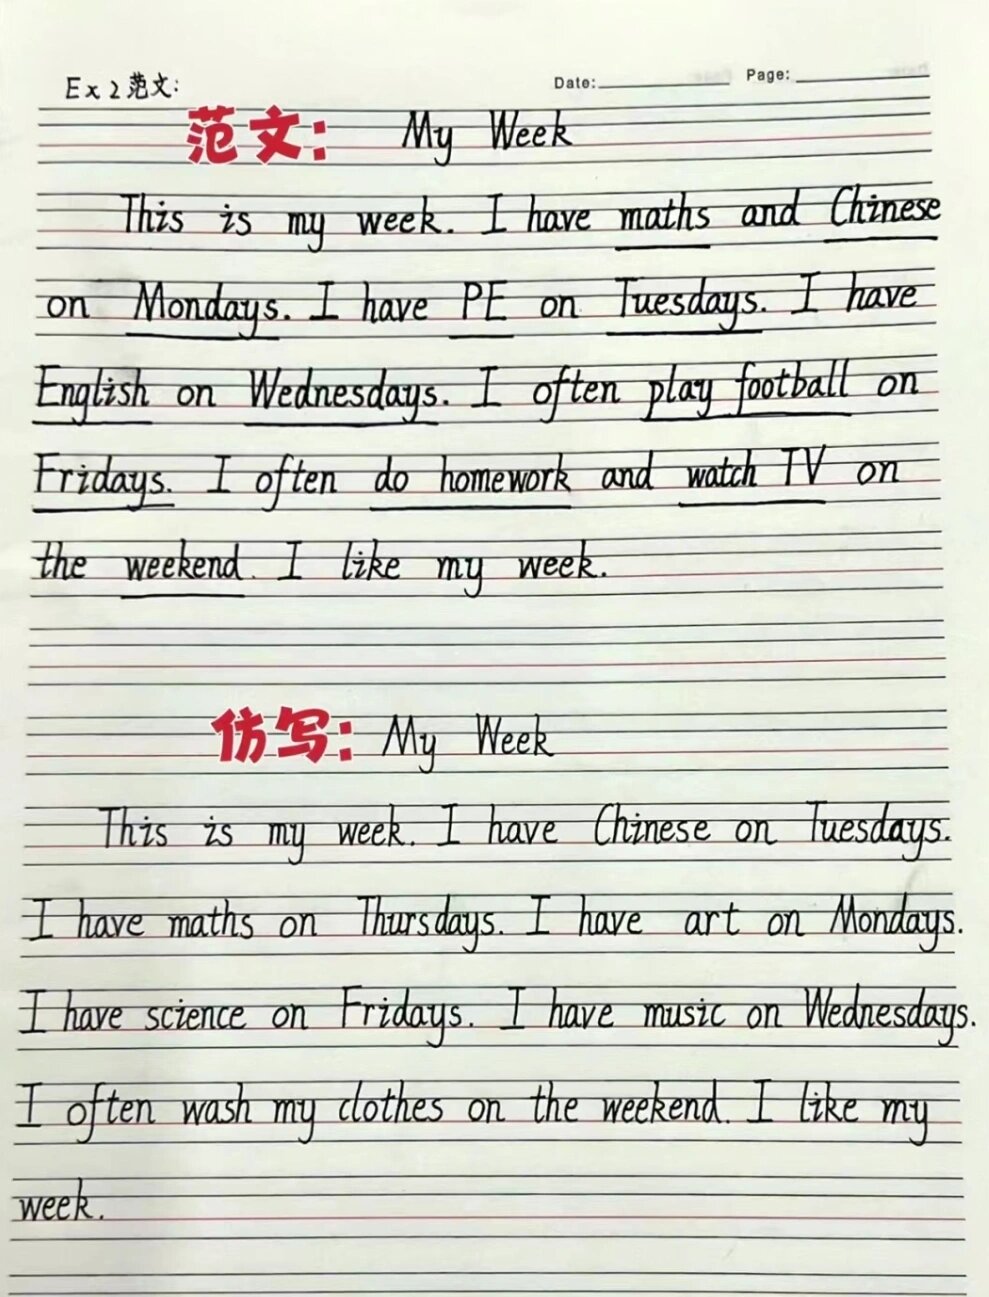 Ex 2 范文:
Date: Page:
范文: My Week
This is my week. I have maths and Chinese
on Mondays. I have PE on Tuesdays. I have
English on Wednesdays. I often play football on
Fridays. I often do homework and watch TV on
the weekend. I like my week.
仿写: My Week
This is my week. I have Chinese on Tuesdays.
I have maths on Thursdays. I have art on Mondays.
I have science on Fridays. I have music on Wednesdays.
I often wash my clothes on the weekend. I like my
week.